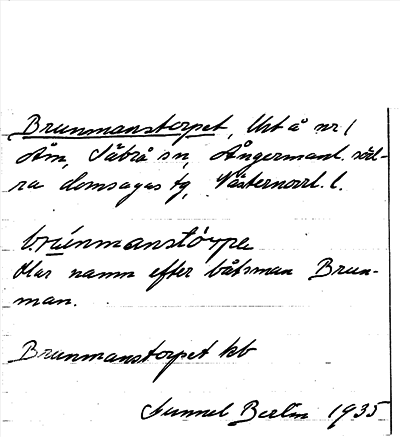 Brunmanstorpet, Utå nr 1
Åm, Säbrå sn, Ångermanl. söd-
ra domsagas tg, Västernorrl. l.
brùnmanstórpe
Har namn efter båtsman Brun-
man.
Brunmanstorpet kb
Gunnel Berlin 1935